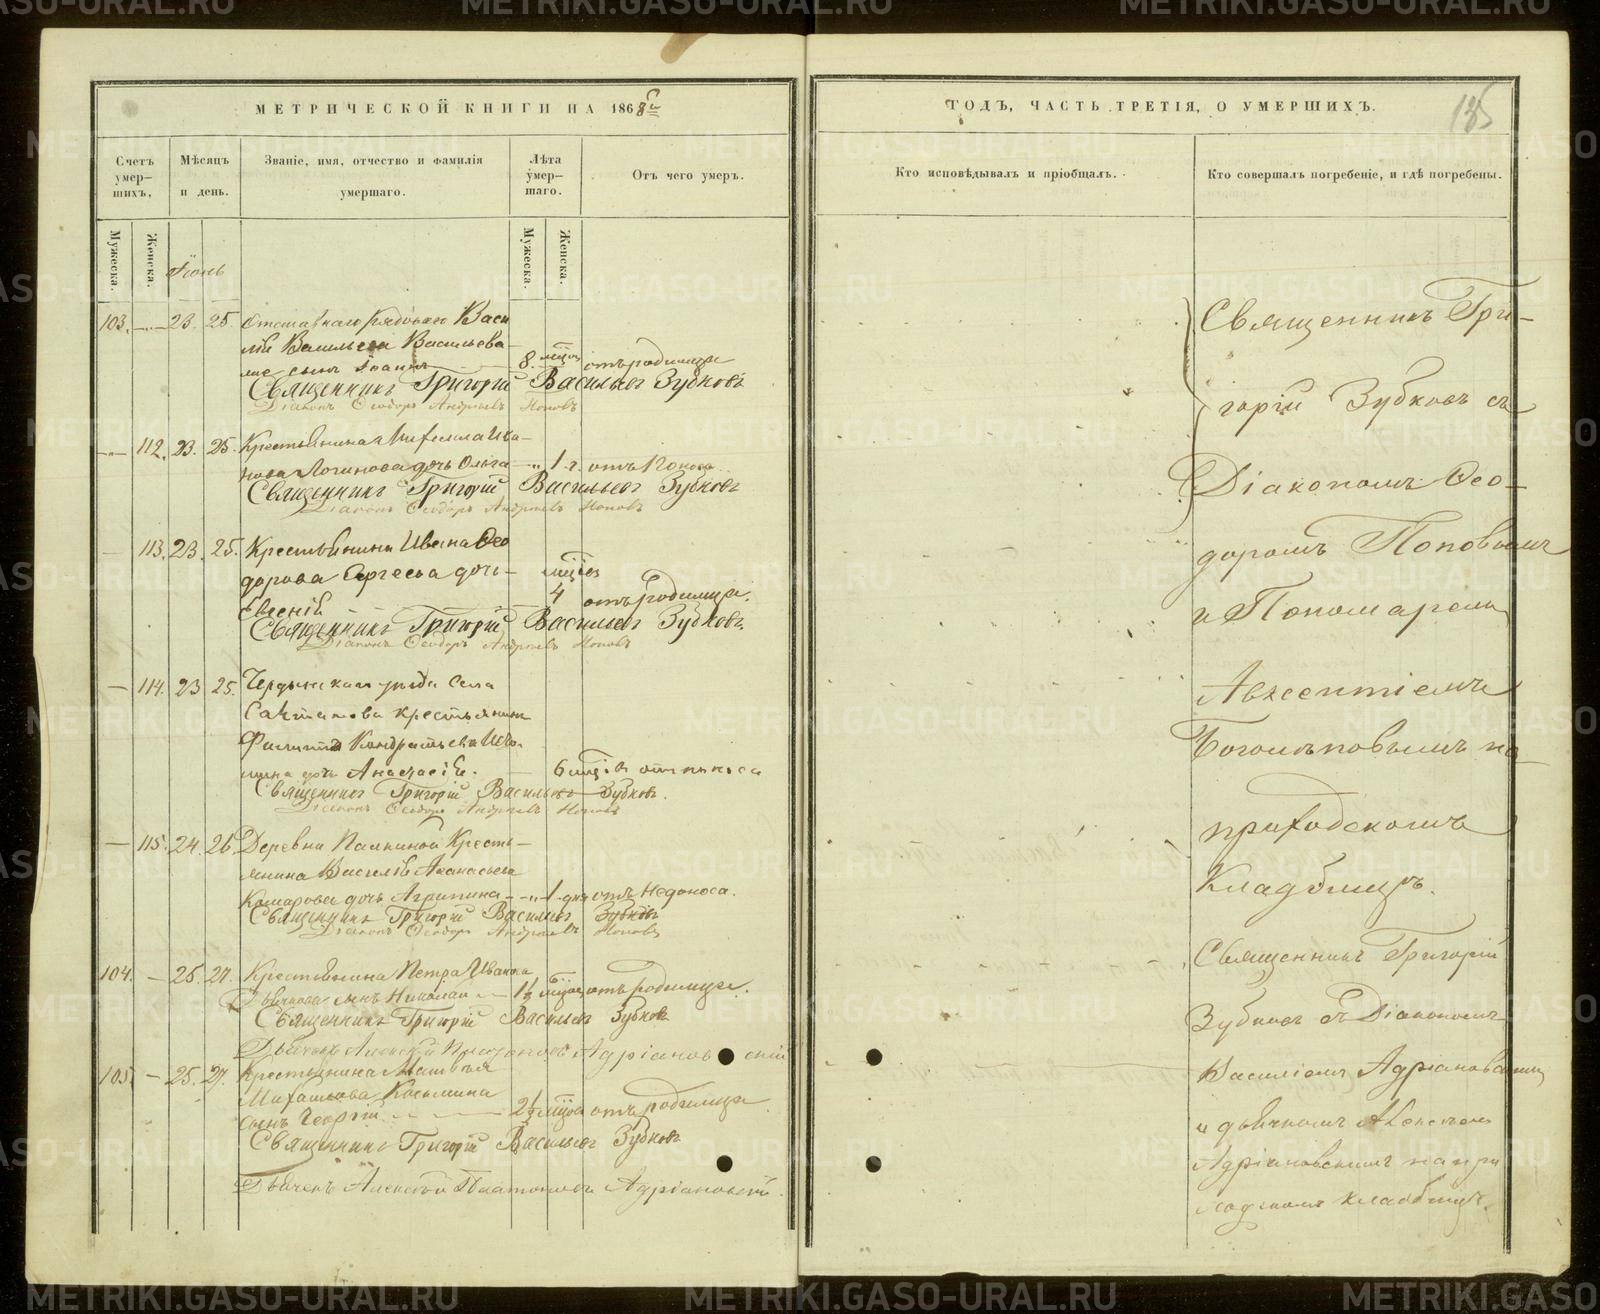 МЕТРИЧЕСКОЙ КНИГИ НА 1868й
Счетъ умер-шихъ,
Мѣсяцъ и день.
Званіе, имя, отчество и фамилія умершаго.
Лѣта умер-шаго.
Отъ чего умеръ.
Мужеска.
Женска.
Мужеска.
Женска.
Іюнь
103. 23. 25. Отставнаго рядоваго Васи
лія Васильева Васильева
сынъ Іоаннъ 8 мцовъ отъ родимца
Священникъ Григорій Васильевъ Зубковъ
Діаконъ Ѳеодоръ Андреевъ Поповъ
112. 23. 25. Крестьянина Михаила Ива-
нова Логинова дочь Ольга 1 г. отъ поноса
Священникъ Григорій Васильевъ Зубковъ
Діаконъ Ѳеодоръ Андреевъ Поповъ
113. 23. 25. Крестьянина Ивана Ѳео
дорова Сергеева дочь
Евгенія мцовъ 4 отъ родимца.
Священникъ Григорій Васильевъ Зубковъ
Діаконъ Ѳеодоръ Андреевъ Поповъ
114. 23 25. Чердынскаго уезда Села
крестьянина
Филиппа Кондратьева
дочь Анастасія. 6 мцовъ отъ поноса
Священникъ Григорій Васильевъ Зубковъ.
Діаконъ Ѳеодоръ Андреевъ Поповъ
115. 24. 26 Деревни Палкиной Кресть-
янина Василія Аѳанасьева
Комарова дочь Агрипина 1 дня отъ недоноса.
Священникъ Григорій Васильевъ Зубковъ
Діаконъ Ѳеодоръ Андреевъ Поповъ
104. 25. 27. Крестьянина Петра Иванова
сынъ Николай 1½ мцовъ отъ родимца.
Священникъ Григорій Васильевъ Зубковъ
Дьячекъ Алексѣй Платоновъ Адріановскій
105. 25. 27. Крестьянина Матвѣя
Михайлова Косьмина
сынъ Георгій 2½ мцовъ отъ родимца
Священникъ Григорій Васильевъ Зубковъ
Дьячекъ Алексѣй Платоновъ Адріановскій.
ГОДЪ, ЧАСТЬ ТРЕТІЯ, О УМЕРШИХЪ.
135
Кто исповѣдывалъ и пріобщалъ.
Кто совершалъ погребеніе, и гдѣ погребены.
Священникъ Гри-
горій Зубковъ съ
Діакономъ Ѳео-
доромъ Поповымъ
и Пономаремъ
Авксентіемъ
Боголѣповымъ на
приходскомъ
Кладбищѣ.
Священникъ Григорій
Зубковъ съ Діакономъ
Василіемъ Адріановскимъ
и дьячкомъ Алексѣемъ
Адріановскимъ на при
ходскомъ кладбищѣ.
METRIKI.GASO-URAL.RU